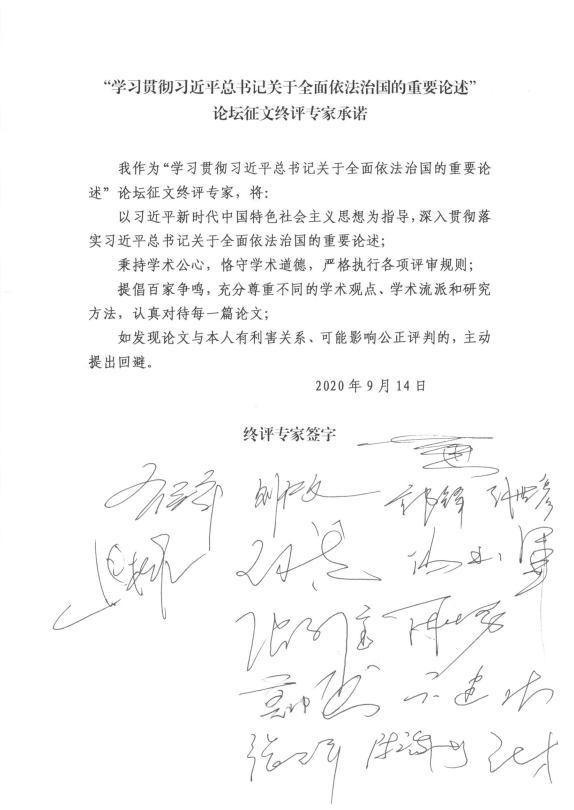 “学习贯彻习近平总书记关于全面依法治国的重要论述”
论坛征文终评专家承诺
我作为“学习贯彻习近平总书记关于全面依法治国的重要论
述”论坛征文终评专家，将：
以习近平新时代中国特色社会主义思想为指导，深入贯彻落
实习近平总书记关于全面依法治国的重要论述；
秉持学术公心，恪守学术道德，严格执行各项评审规则；
提倡百家争鸣，充分尊重不同的学术观点、学术流派和研究
方法，认真对待每一篇论文；
如发现论文与本人有利害关系、可能影响公正评判的，主动
提出回避。
2020年9月14日
终评专家签字